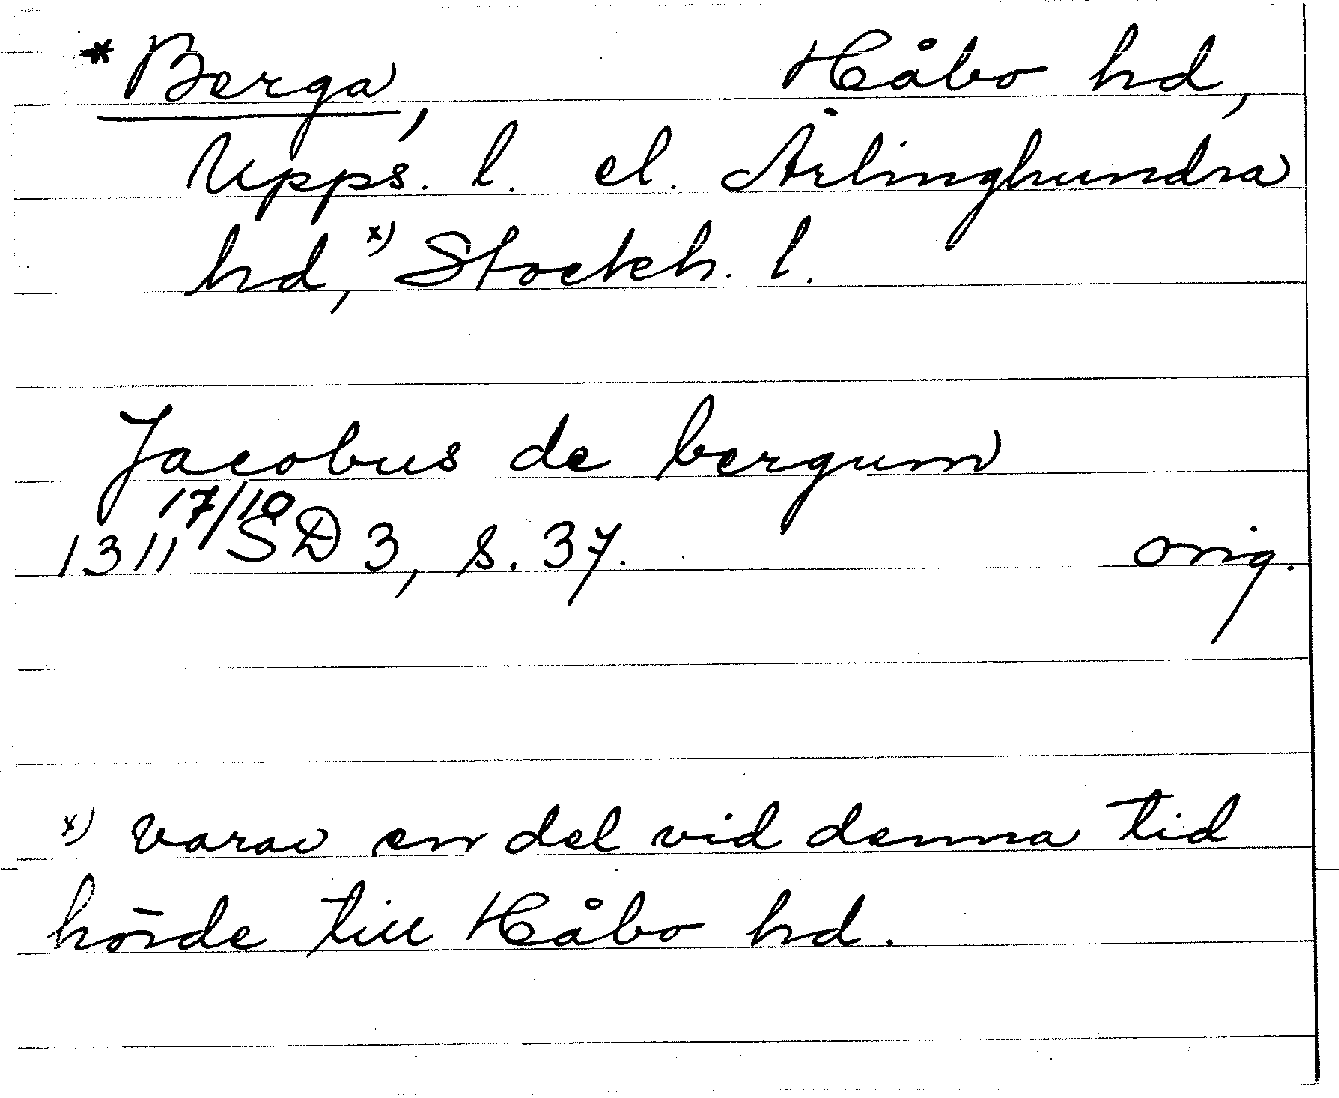 * Berga, Håbo hd,
Upps. l. el. Ärlinghundra
hd,x) Stockh. l.
Jacobus de bergum
1311 17/10 SD 3, s. 37. orig.
x) varav en del vid denna tid
hörde till Håbo hd.